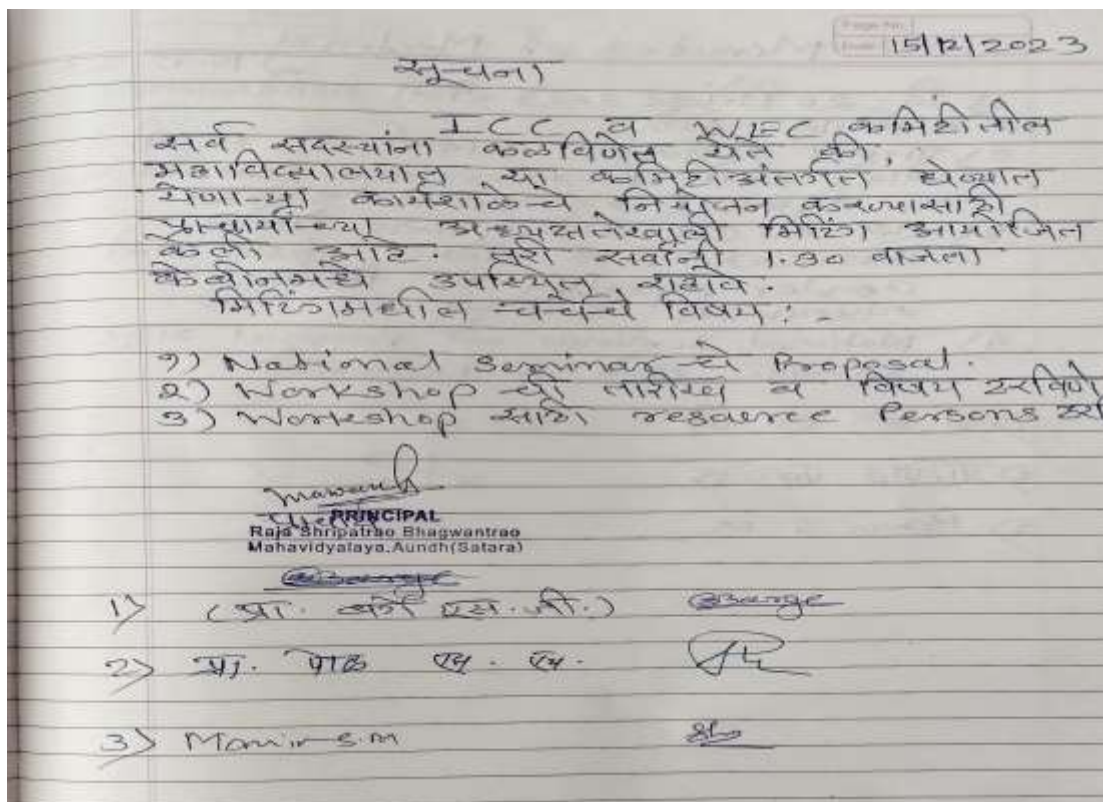 Page No.
Date 15/12/2023
सूचना
ICC व WEC कमिटीतील
सर्व सदस्यांना कळविणेत येते की,
महाविद्यालयात या कमिटीअंतर्गत घेण्यात
येणाऱ्या कार्यशाळेचे नियोजन करण्यासाठी
प्राचार्यांच्या अध्यक्षतेखाली मिटिंग आयोजित
केली आहे. तरी सर्वांनी 1.30 वाजता
केबीनमध्ये उपस्थित रहावे.
मिटिंगमधील चर्चेचे विषय :-
१) National Seminar चे Proposal.
२) Workshop ची तारीख व विषय ठरविणे
३) Workshop साठी resource Persons
PRINCIPAL
Raja Shripatrao Bhagwantrao
Mahavidyalaya, Aundh (Satara)
1) (प्रा. बर्गे एस. जी.) Barge
2) प्रा.
3) S.M